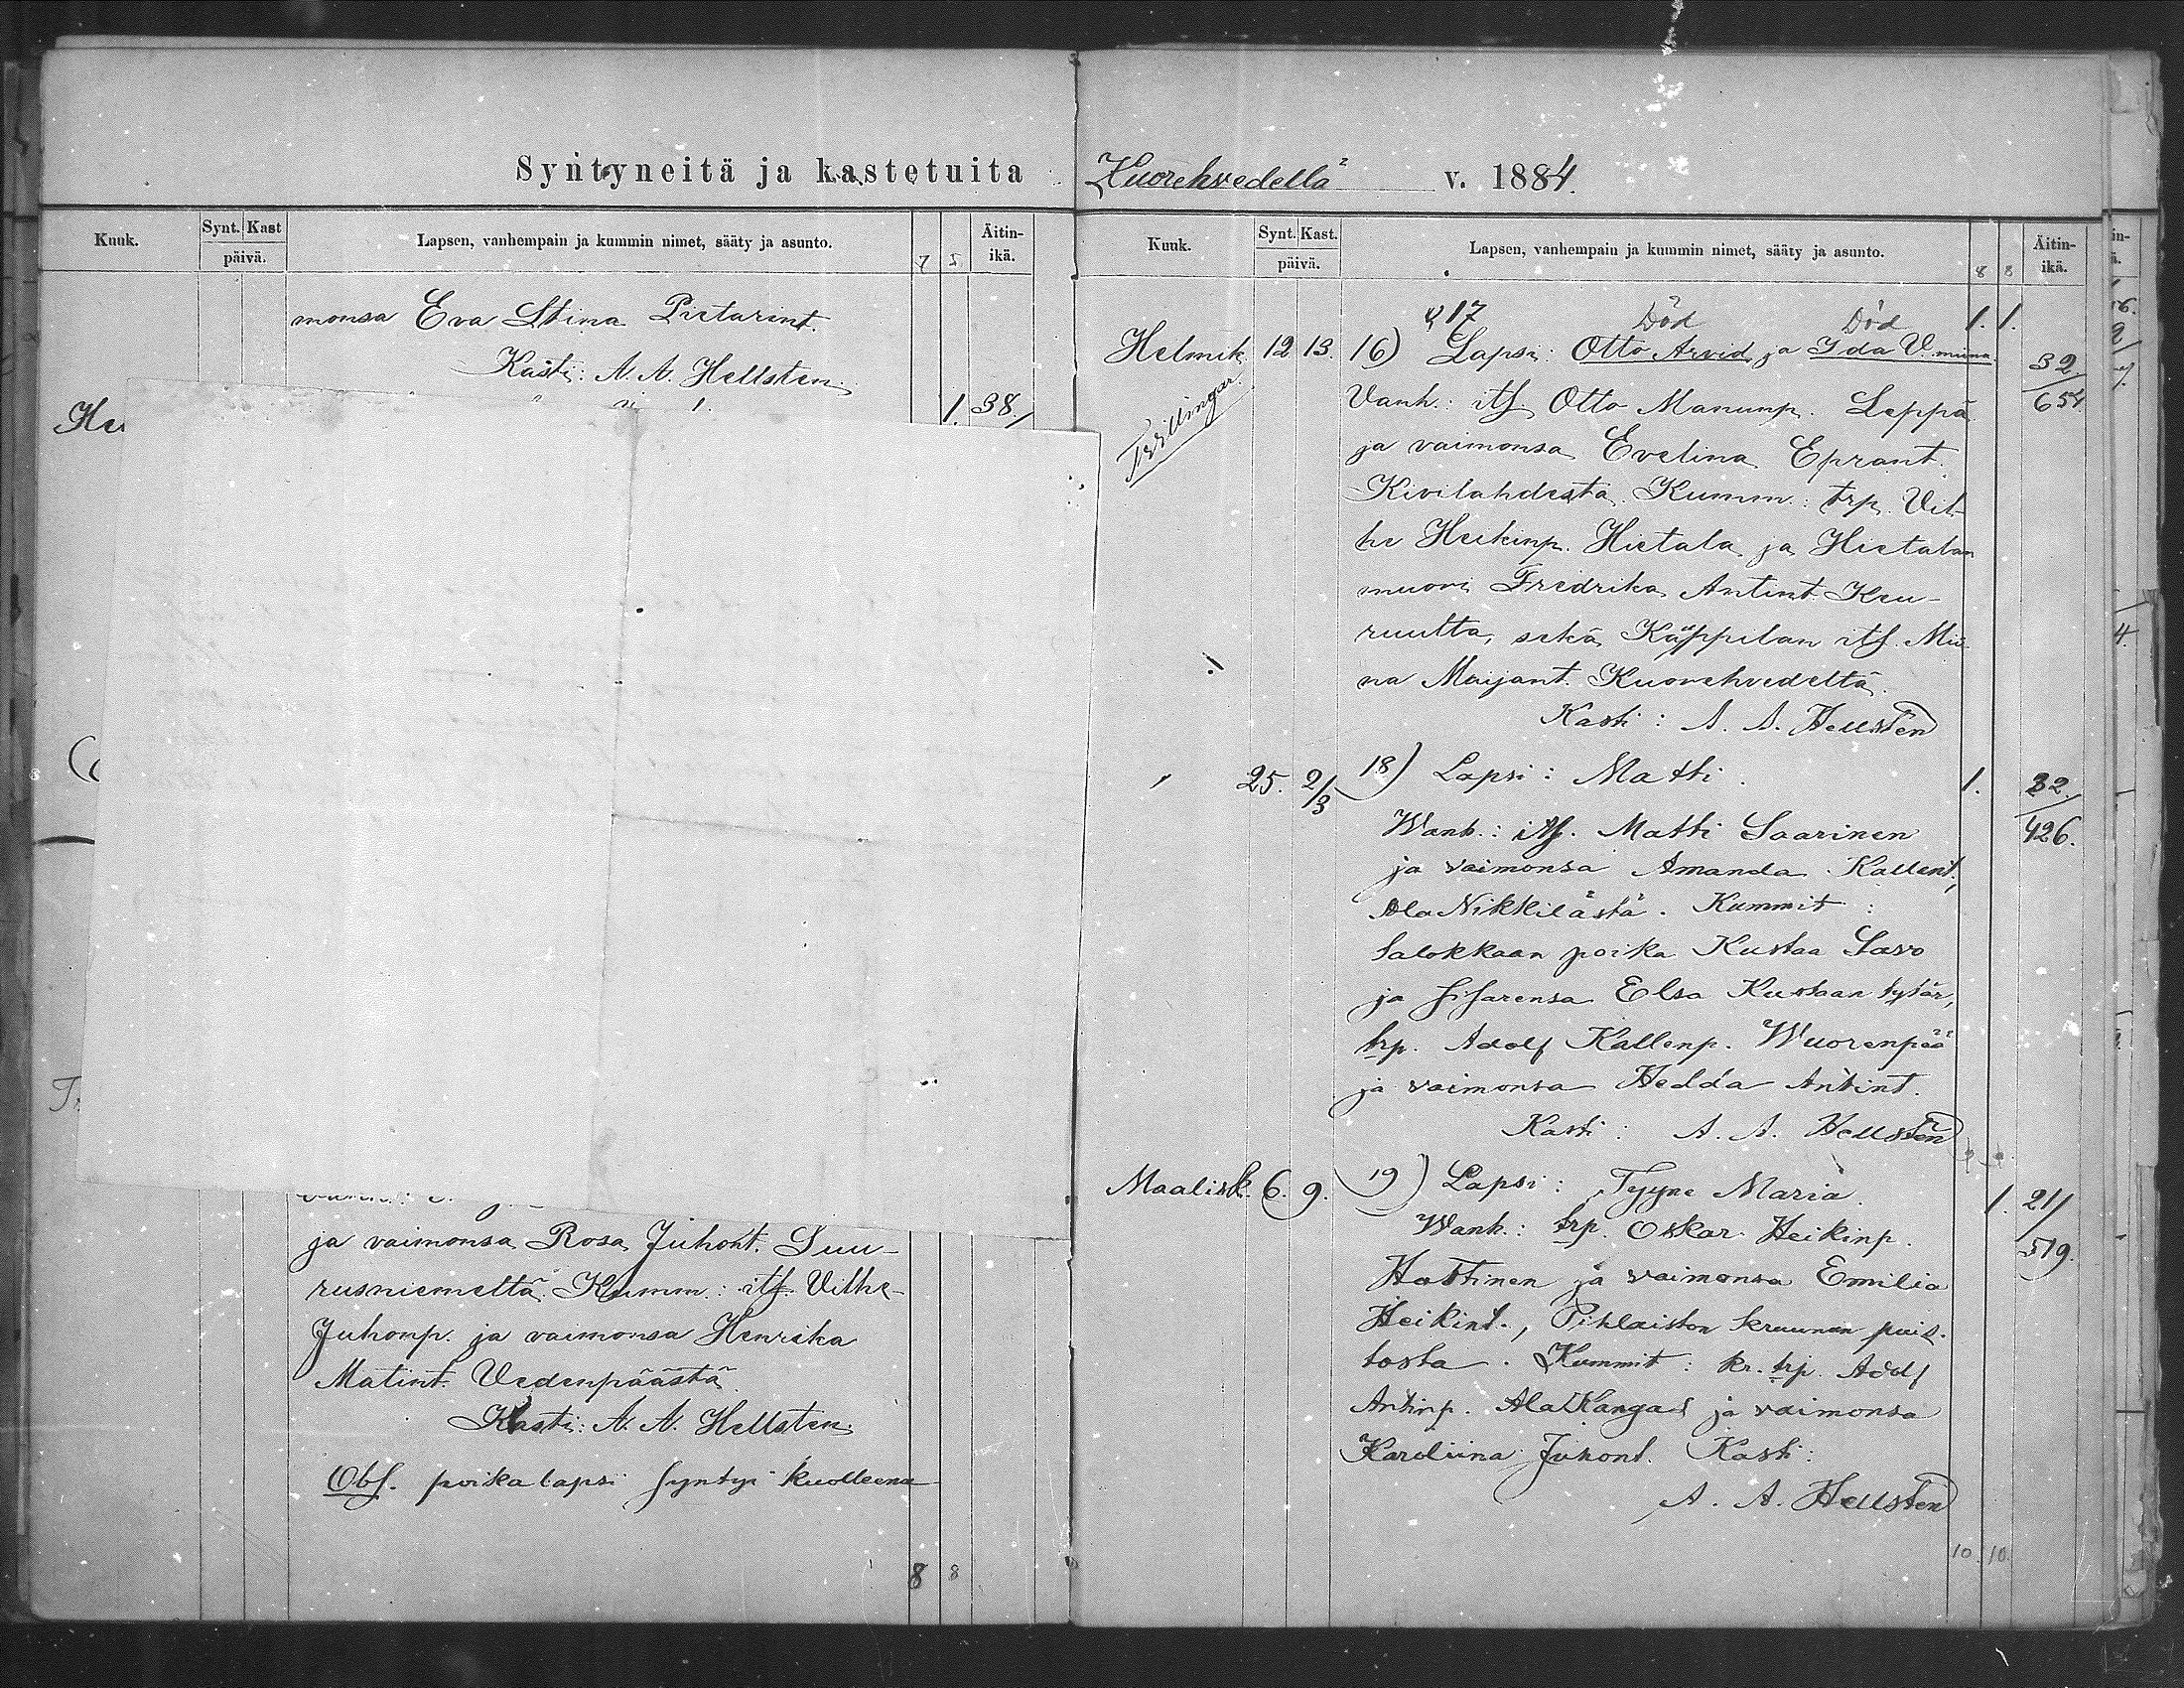 Syntyneitä ja kastetuita
Kuuk. Synt. Kast päivä. Lapsen, vanhempain ja kummin nimet, sääty ja asunto. 7 5 Äitin-ikä.
monsa Eva Stina Pietarint.
Kasti: A. A. Hellsten.
1. 38.
ja vaimonsa Rosa Juhont. Suu-
rusniemeltä. Kumm.: itf. Vilhe
Juhonp. ja vaimonsa Henrika
Matint. Vedenpäästä
Kasti: A. A. Hellsten.
Obs. poika lapsi syntyi kuolleena
8 8
Kuorehvedellä v. 1884.
Kuuk. Synt. Kast. päivä. Lapsen, vanhempain ja kummin nimet, sääty ja asunto. 8 8 Äitin-ikä.
17 Död Död 1. 1.
Helmik. 12 13. 16) Lapsi: Otto Arvid ja Ida V.miina 32.
Tvillingar. Vanh.: itf. Otto Manump. Leppä 654
ja vaimonsa Evelina Eprant.
Kivilahdesta. Kumm.: trp. Vil-
he Heikinp. Hietala ja Hietalan
muori Fredrika Antint. Keu-
ruulta, sekä Käppilan itf. Mii
na Maijant. Kuorehvedeltä.
Kasti: A. A. Hellstén
" 25. 2/3 18) Lapsi: Matti. 1. 32.
Wanh.: itf. Matti Saarinen 426.
ja vaimonsa Amanda Kallent.,
Ala Nikkilästä. Kummit:
Salokkaan poika Kustaa Savo
ja sisarensa Elsa Kustaan tytär,
trp. Adolf Kallenp. Wuorenpää
ja vaimonsa Hedda Antint.
Kasti: A. A. Hellstén
Maalisk. 6. 9. 19) Lapsi: Tyyne Maria. 1. 21/
Wanh.: trp. Oskar Heikinp. 519.
Hastinen ja vaimonsa Emilia
Heikint., Pihlaiston kruunun puis-
tosta. Kummit: kr. trp. Adolf
Antinp. AlaKangas ja vaimonsa
Karoliina Juhont. Kasti:
A. A. Hellstén
10. 10.